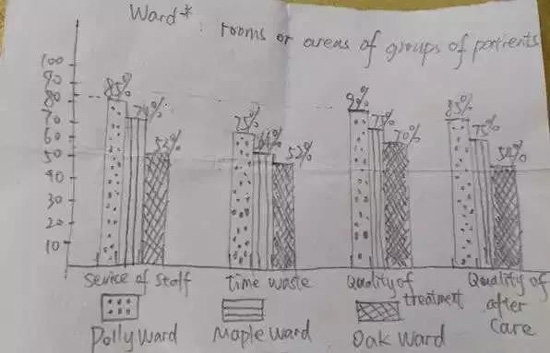 Ward*: rooms or areas of groups of patients
100
90
80
70
60
50
40
30
20
10
85%
74%
52%
75%
64%
52%
90%
75%
70%
85%
75%
50%
Service of staff
Time waste
Quality of treatment
Quality of after care
Polly Ward
Maple Ward
Oak Ward